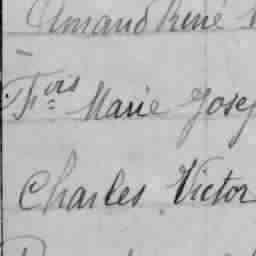 Amand René
Fois Marie Josep
Charles Victor